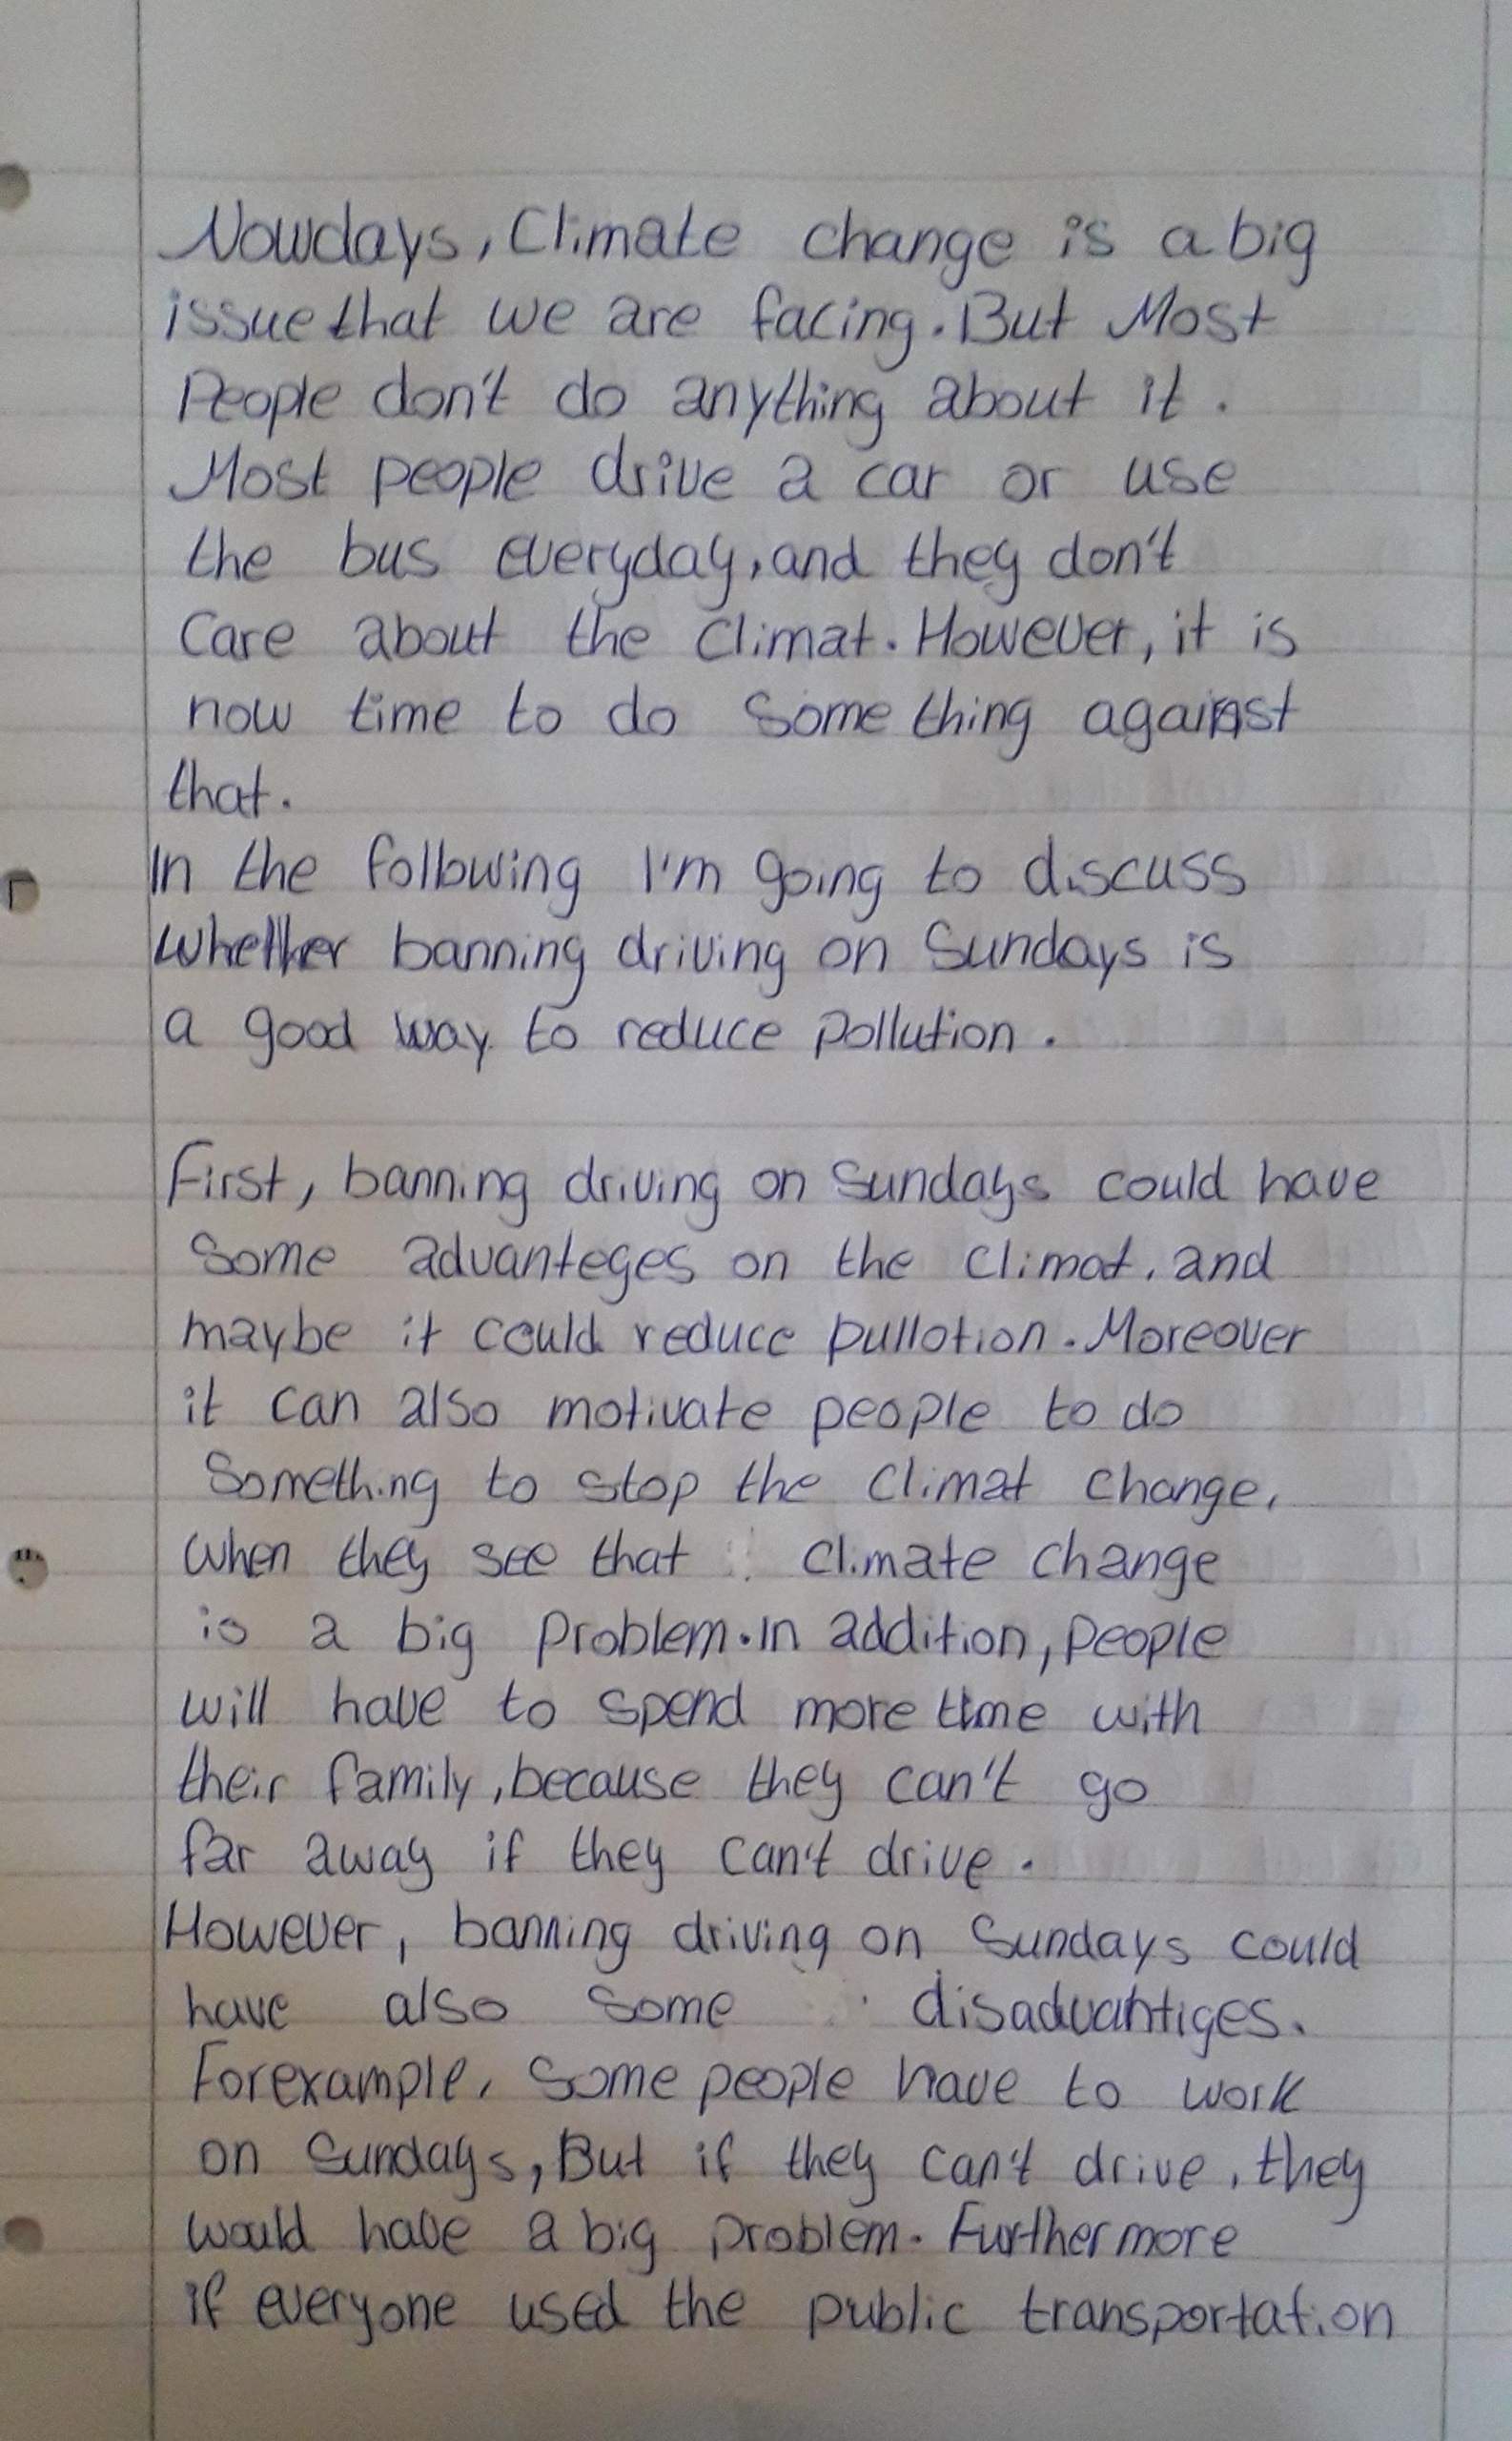 Nowdays, Climate change is a big
issue that we are facing. But Most
People don't do anything about it.
Most people drive a car or use
the bus everyday, and they don't
Care about the Climat. However, it is
now time to do Something against
that.
In the following I'm going to discuss
whether banning driving on Sundays is
a good way to reduce pollution.
First, banning driving on Sundays could have
Some advanteges on the Climat, and
maybe it could reduce pullotion. Moreover
it can also motivate people to do
Something to stop the Climat change,
when they see that climate change
is a big problem. In addition, people
will have to spend more time with
their family, because they can't go
far away if they can't drive.
However, banning driving on Sundays could
have also some disadvantiges.
Forexample, Some people have to work
on Sundays, But if they can't drive, they
would have a big problem. Furthermore
if everyone used the public transportation